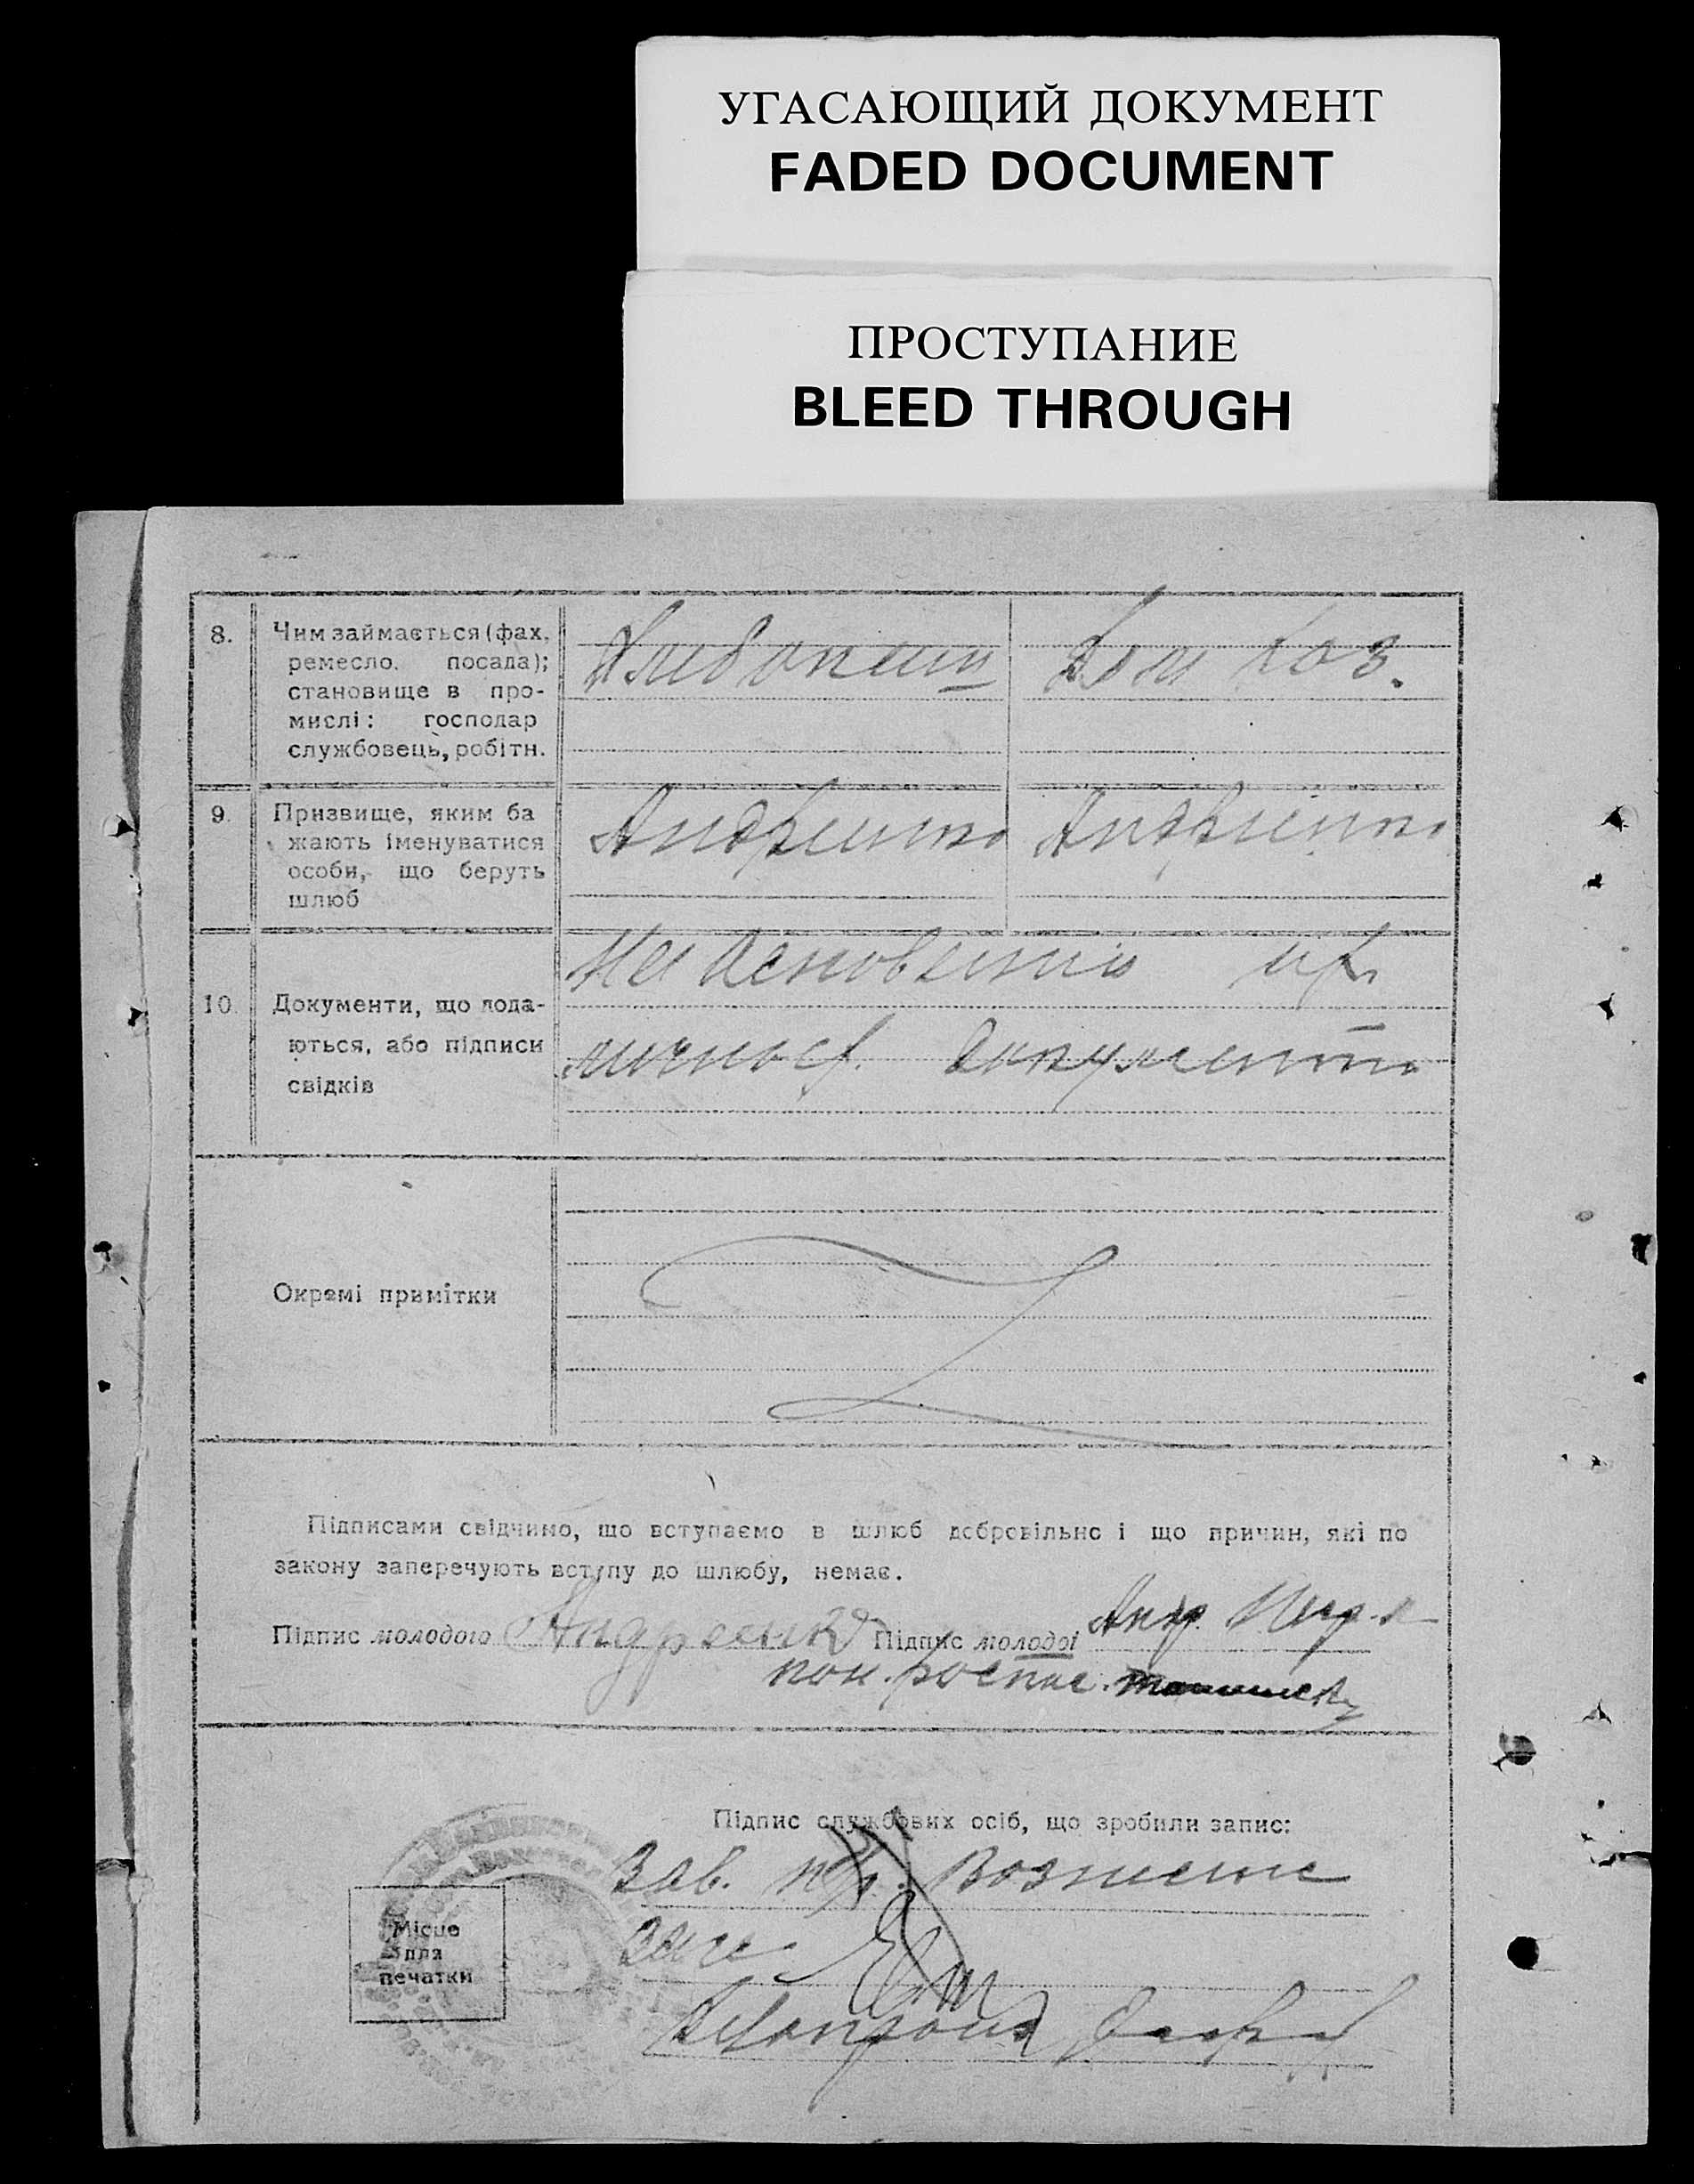 УГАСАЮЩИЙ ДОКУМЕНТ
FADED DOCUMENT
ПРОСТУПАНИЕ
BLEED THROUGH
8. Чим займається (фах,
ремесло, посада);
становище в про-
мислі: господар
службовець, робітн.
Дом хоз.
9. Призвище, яким ба
жають іменуватися
особи, що беруть
шлюб
Андриенко Андриенко
10. Документи, що дода-
ються, або підписи
свідків
На основании
личност. документа
Окремі примітки
Підписами свідчимо, що вступаємо в шлюб добровільно і що причин, які по
закону заперечують вступу до шлюбу, немає.
Підпис молодого Андреенко Підпис молодої Андр.
Підпис службових осіб, що зробили запис:
Зав.
Місце
для
печатки